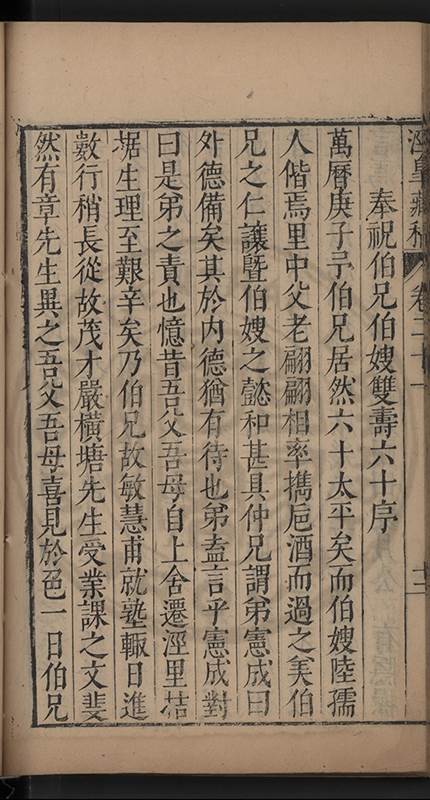 涇臯藏稿　卷二十一　十二
奉祝伯兄伯嫂雙壽六十序
萬曆庚子予伯兄居然六十太平矣而伯嫂陸孺
人偕焉里中父老翩翩相率擕巵酒而過之美伯
兄之仁讓曁伯嫂之懿和甚具仲兄謂弟憲成曰
外德備矣其於内德猶有待也弟盍言乎憲成對
曰是弟之責也憶昔吾父吾母自上舍遷涇里拮
据生理至艱辛矣乃伯兄故敏慧甫就塾輙日進
數行稍長從故茂才嚴橫塘先生受業課之文斐
然有章先生異之吾父吾母喜見於色一日伯兄